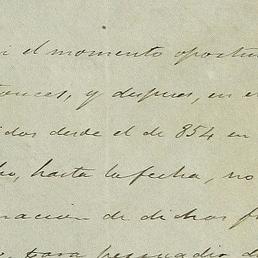 el momento oportu
tonces, y despues, en e
idos desde el de 854 en
ho, hasta la fecha, no
nacion de dichos f
para